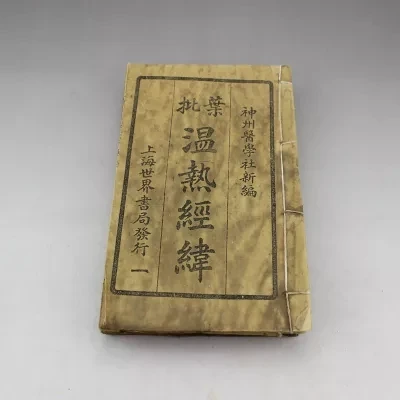 神州醫學社新編
葉批
温熱經緯
上海世界書局發行
一